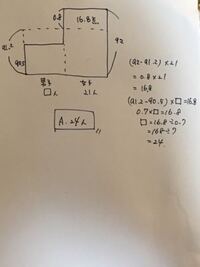 0.8
16.8点
92
91.2
90.5
男子
女子
□人
21人
A. 24人
(92-91.2)×21
= 0.8×21
= 16.8
(91.2-90.5)×□=16.8
0.7×□=16.8
□=16.8÷0.7
=168÷7
=24